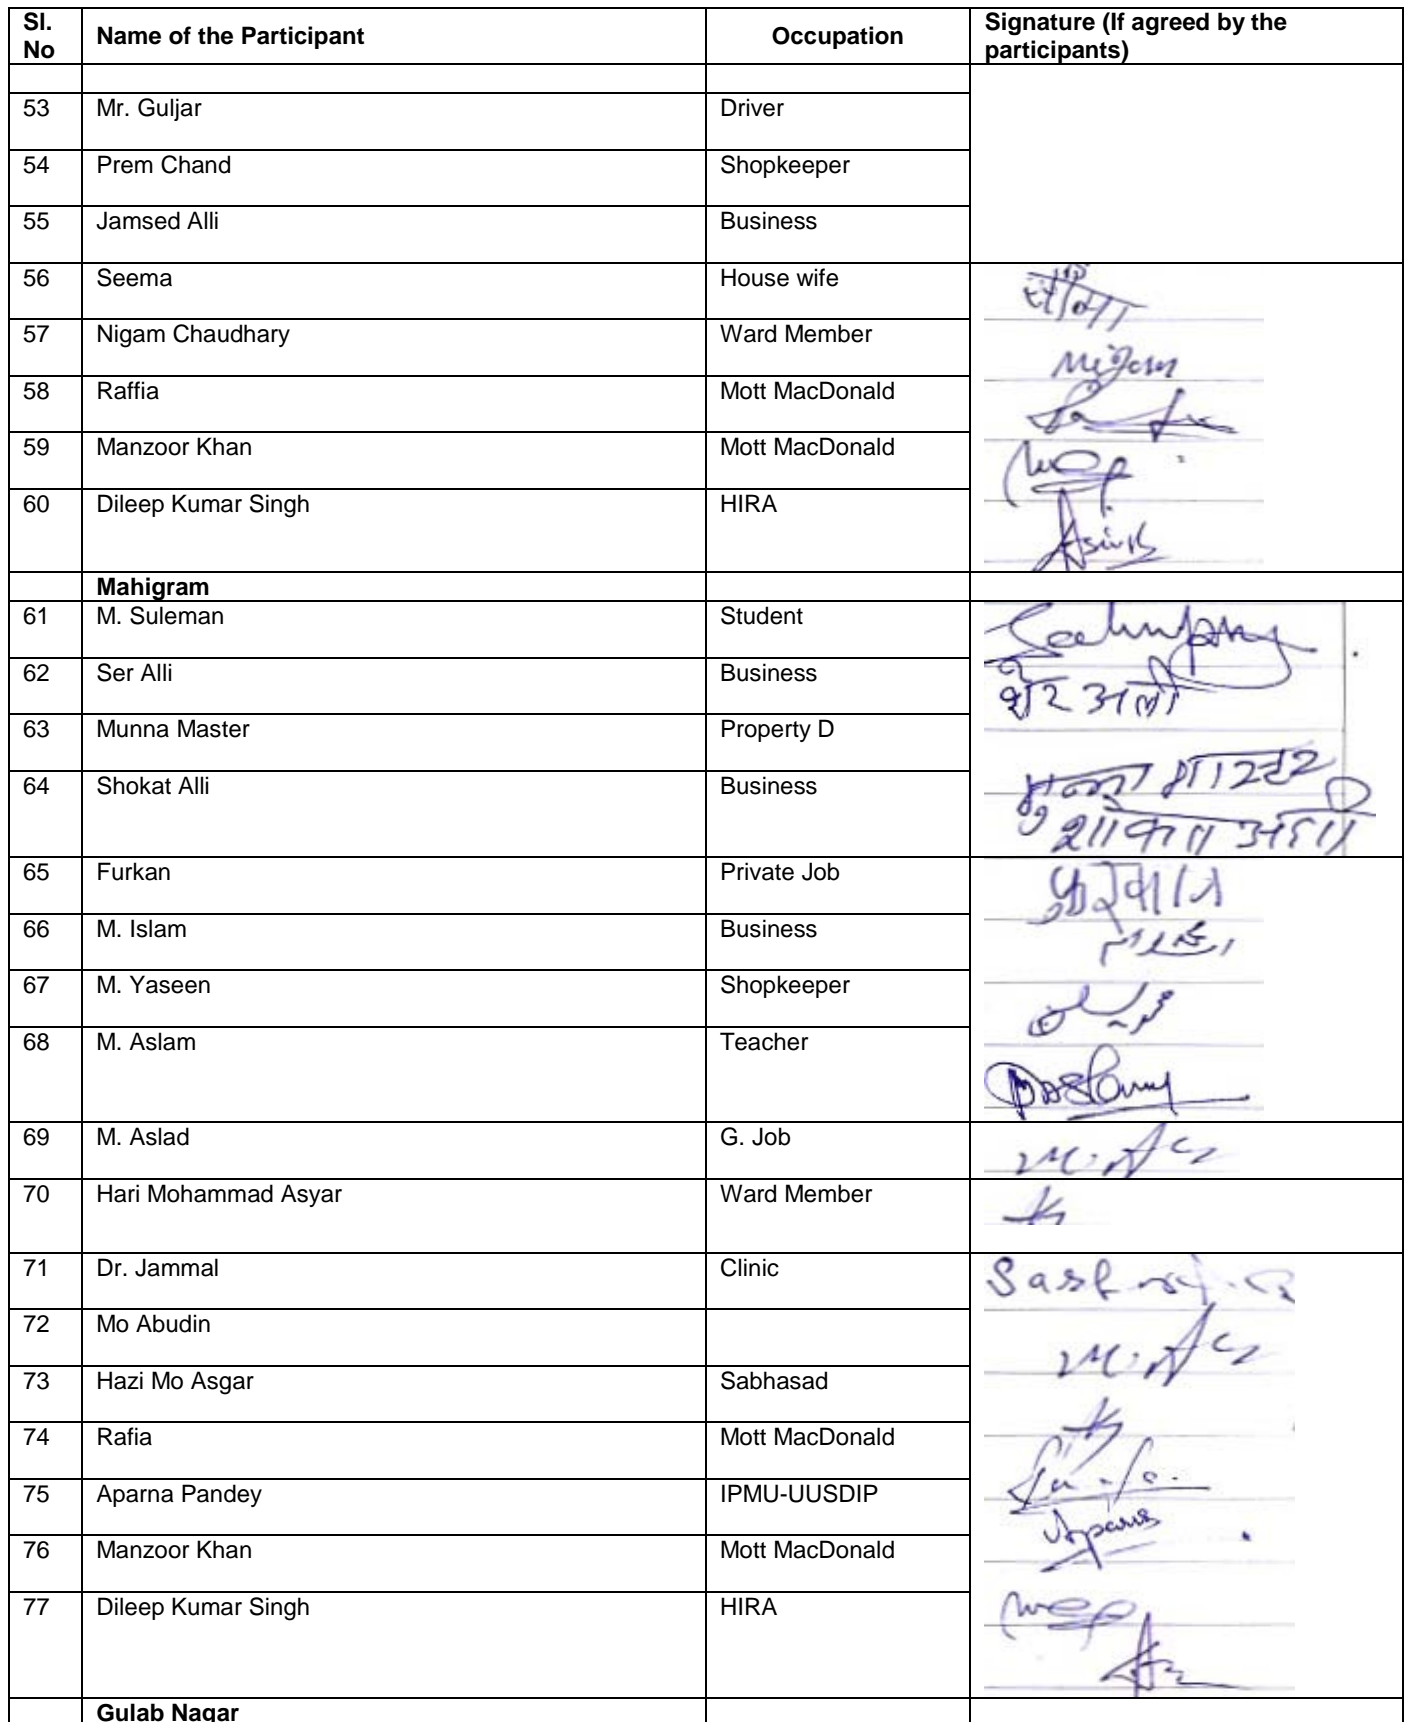 Sl. No Name of the Participant Occupation Signature (If agreed by the participants)
53 Mr. Guljar Driver
54 Prem Chand Shopkeeper
55 Jamsed Alli Business
56 Seema House wife सीमा
57 Nigam Chaudhary Ward Member Nigam
58 Raffia Mott MacDonald
59 Manzoor Khan Mott MacDonald
60 Dileep Kumar Singh HIRA
Mahigram
61 M. Suleman Student
62 Ser Alli Business शेर अली
63 Munna Master Property D मुन्ना मास्टर
64 Shokat Alli Business शोकत अली
65 Furkan Private Job
66 M. Islam Business
67 M. Yaseen Shopkeeper
68 M. Aslam Teacher
69 M. Aslad G. Job
70 Hari Mohammad Asyar Ward Member
71 Dr. Jammal Clinic
72 Mo Abudin
73 Hazi Mo Asgar Sabhasad
74 Rafia Mott MacDonald
75 Aparna Pandey IPMU-UUSDIP
76 Manzoor Khan Mott MacDonald
77 Dileep Kumar Singh HIRA
Gulab Nagar